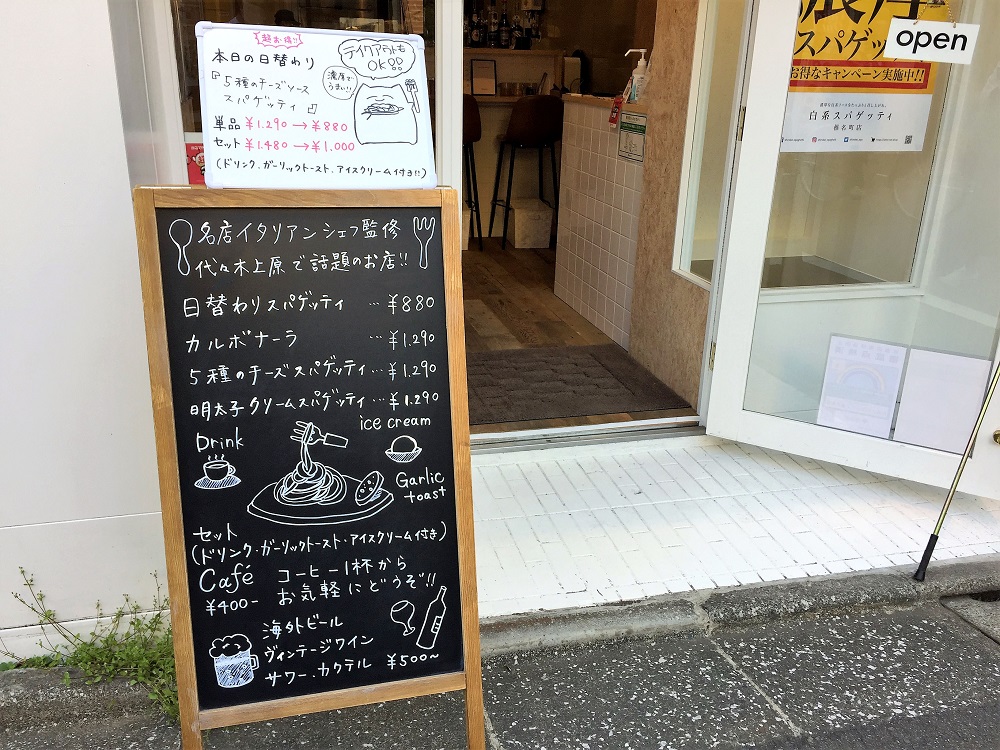 超お得!!
本日の日替わり
『5種のチーズソース
スパゲッティ』
テイクアウトも
OK!!
濃厚で
うまい!!
単品 ¥1.290→¥880
セット ¥1.480→¥1.000
(ドリンク・ガーリックトースト・アイスクリーム付き!!)
名店イタリアンシェフ監修
代々木上原で話題のお店!!
日替わりスパゲッティ …¥880
カルボナーラ …¥1.290
5種のチーズスパゲッティ…¥1.290
明太子クリームスパゲッティ…¥1.290
Drink
ice cream
Garlic
toast
セット
(ドリンク・ガーリックトースト・アイスクリーム付き)
Café コーヒー1杯から
¥400- お気軽にどうぞ!!
海外ビール
ヴィンテージワイン
サワー.カクテル ¥500~
open
濃厚
スパゲッ
お得なキャンペーン実施中!!
白系スパゲッティ
椎名町店